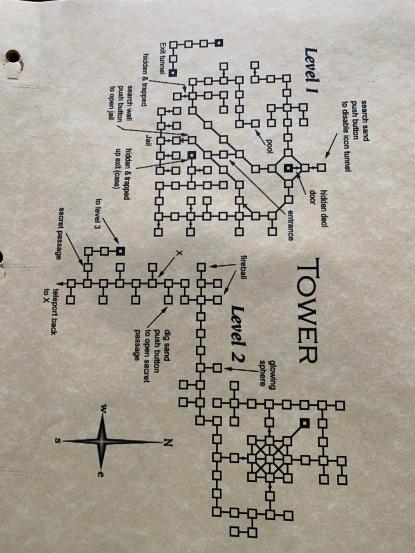 TOWER
Level 1
search sand
push button
to disable icon tunnel
hidden decl
door
entrance
pool
Exit tunnel
hidden & trapped
search wall
push button
to open jail
Jail
hidden & trapped
up exit (case)
Level 2
fireball
glowing
sphere
X
dig sand
push button
to open secret
passage
to level 3
secret passage
teleport back
to X
N
w
e
s